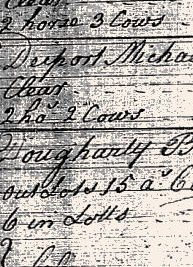 Clear
2 horse 3 Cows
Deiport Micha
Clear
2 ho^s 2 Cows
Dougharty B
outLotts 15 a^s 6
6 in Lotts